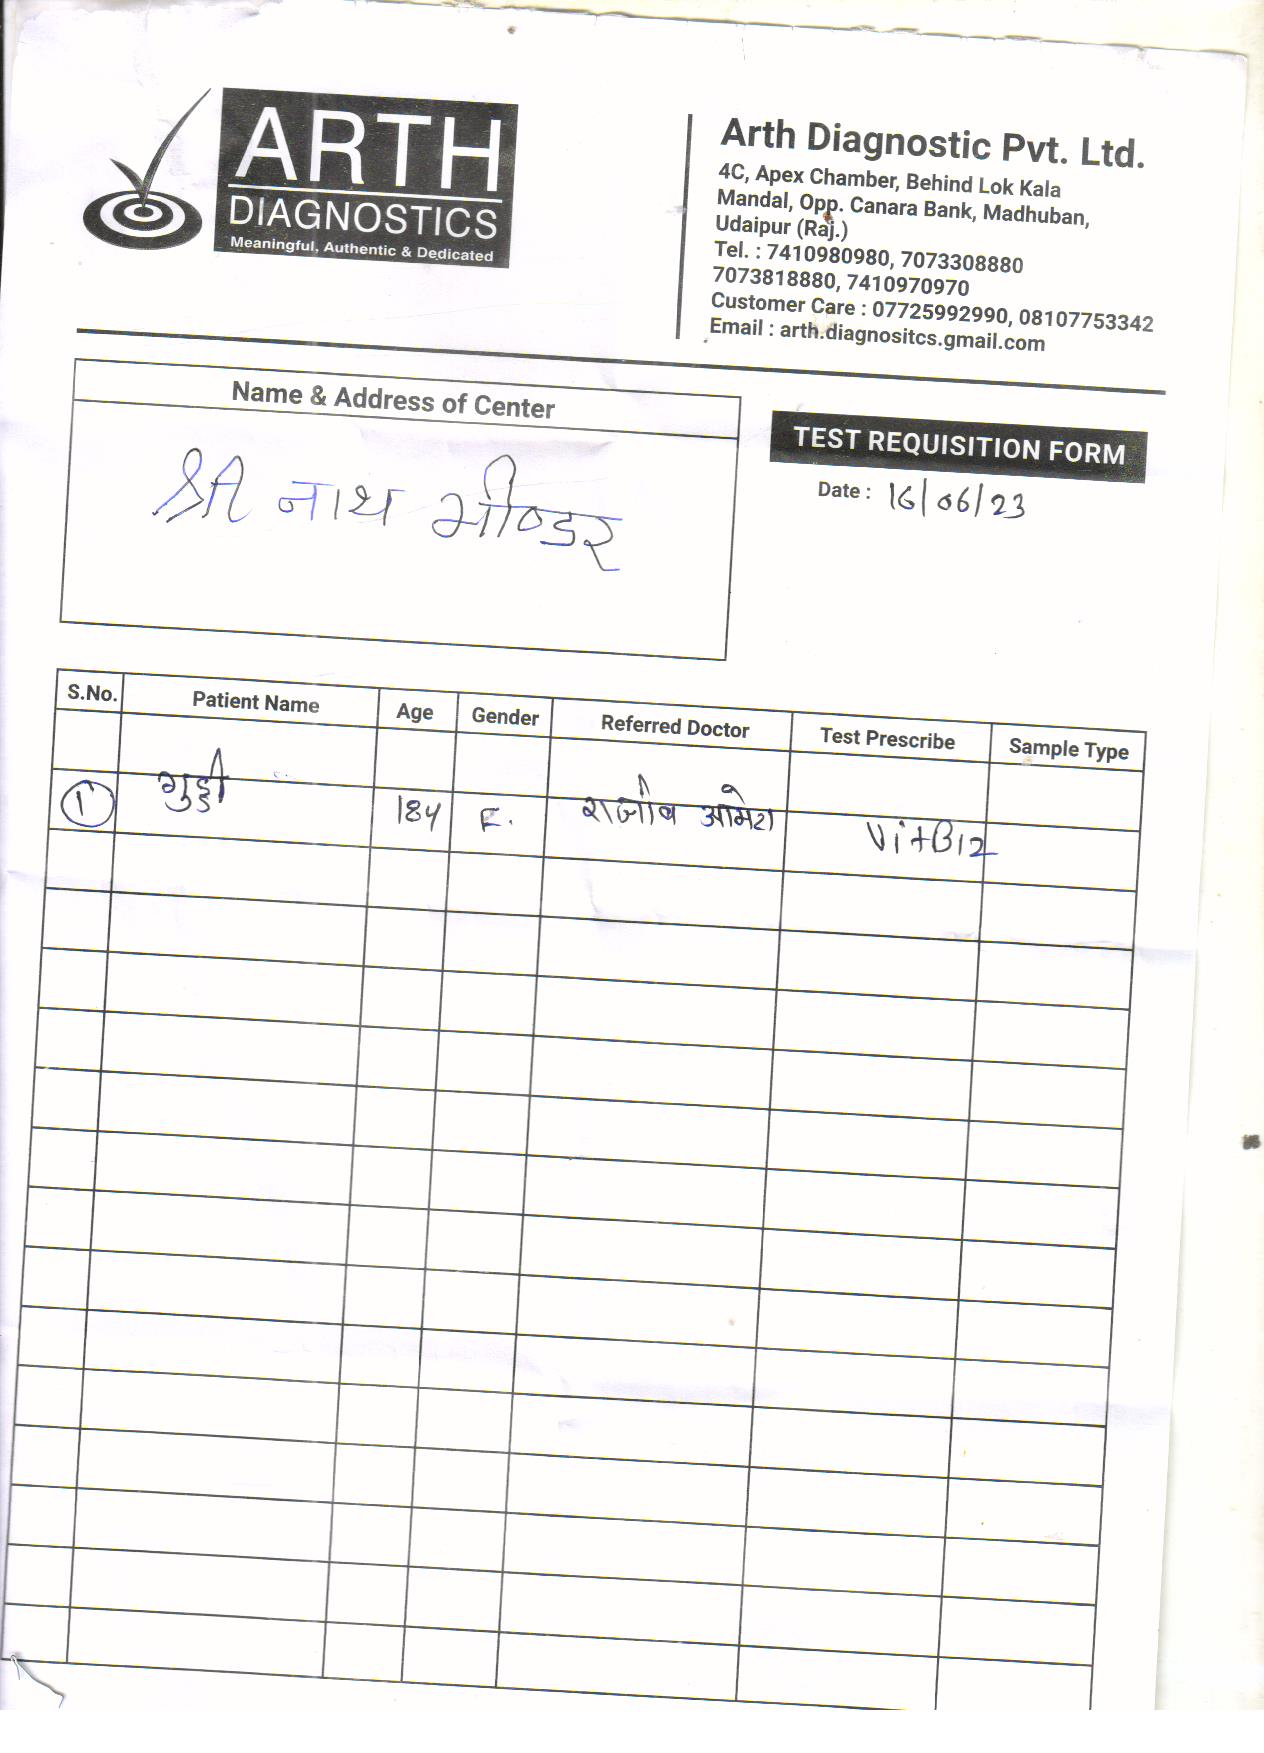 ARTH
DIAGNOSTICS
Meaningful, Authentic & Dedicated
Arth Diagnostic Pvt. Ltd.
4C, Apex Chamber, Behind Lok Kala
Mandal, Opp. Canara Bank, Madhuban,
Udaipur (Raj.)
Tel. : 7410980980, 7073308880
7073818880, 7410970970
Customer Care : 07725992990, 08107753342
Email : arth.diagnositcs.gmail.com
Name & Address of Center
श्री नाथ भीण्डर
TEST REQUISITION FORM
Date : 16/06/23
S.No. Patient Name Age Gender Referred Doctor Test Prescribe Sample Type
1 गुड्डी F. राजीव आमेटा Vit B12